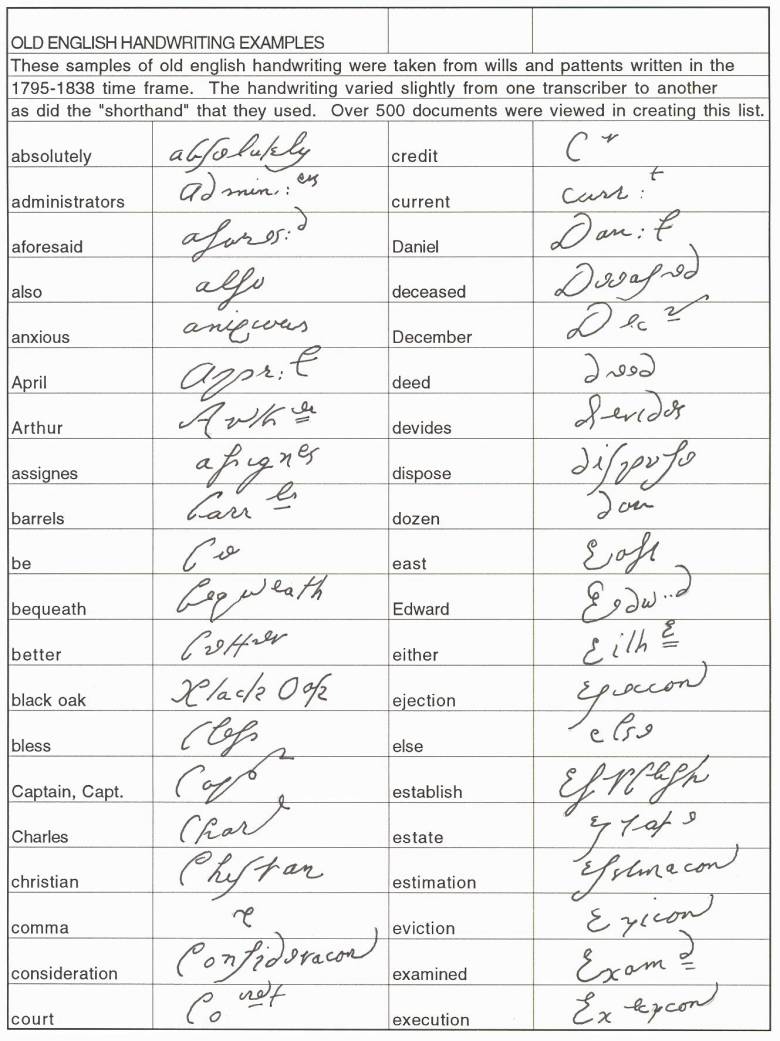 OLD ENGLISH HANDWRITING EXAMPLES
These samples of old english handwriting were taken from wills and pattents written in the
1795-1838 time frame. The handwriting varied slightly from one transcriber to another
as did the "shorthand" that they used. Over 500 documents were viewed in creating this list.
absolutely absolutely credit Cr
administrators Admin.:ers current curr:t
aforesaid afores:d Daniel Dan:l
also also deceased Deceased
anxious December Decr
April Appr:l deed deed
Arthur Arther devides devides
assignes assignes dispose dispose
barrels barrls dozen
be be east East
bequeath bequeath Edward Edw..d
better better either Eithe
black oak black Oak ejection
bless bless else else
Captain, Capt. establish
Charles Charl estate
christian Christian estimation Estimacon
comma eviction
consideration Consideracon examined Examd
court execution